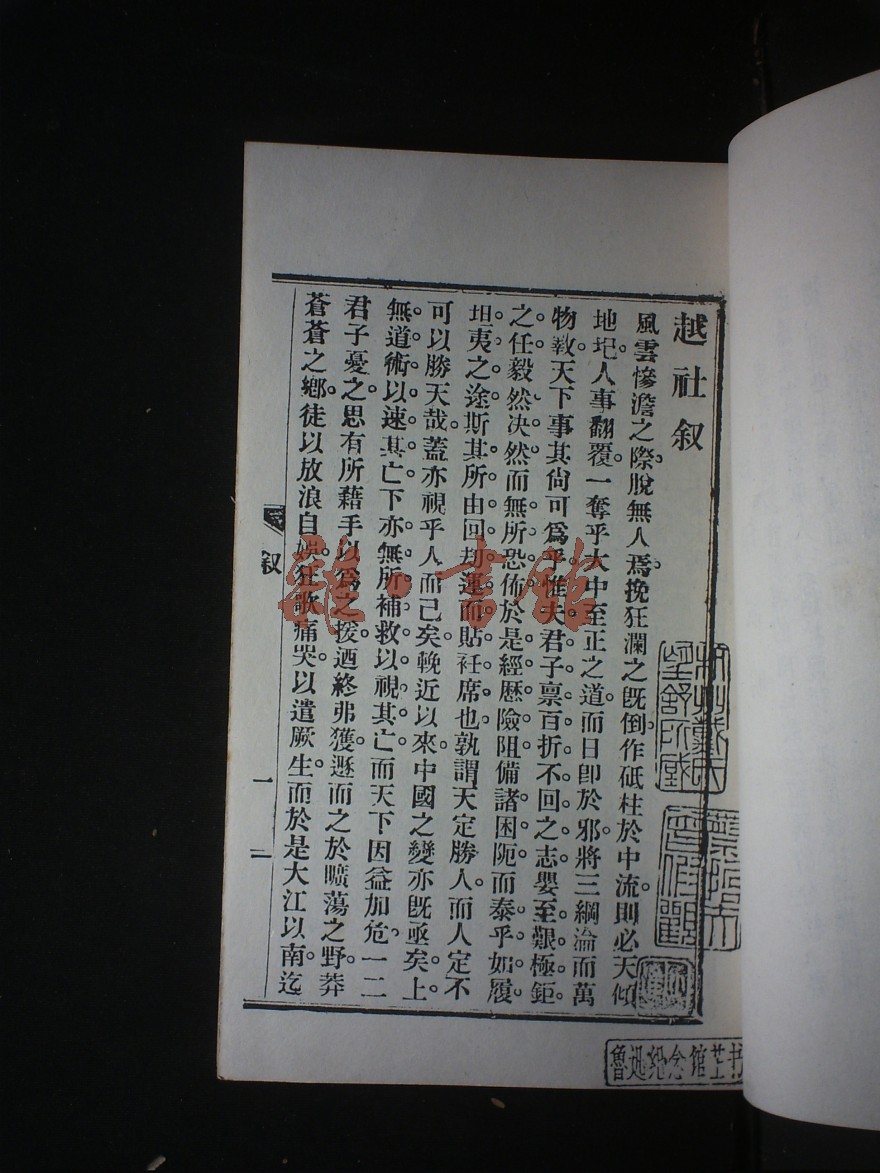 越社叙
風雲慘澹之際。脫無人焉。挽狂瀾之旣倒。作砥柱於中流。則必天傾
地圮。人事翻覆。一奪乎大中至正之道。而日卽於邪。將三綱淪而萬
物斁。天下事其尙可爲乎。惟夫君子禀百折不回之志。嬰至艱極鉅
之任。毅然决然而無所恐佈。於是經歷險阻。備諸困阨。而泰乎如履
坦夷之途。斯其所由回刧運而貼袵席也。孰謂天定勝人。而人定不
可以勝天哉。蓋亦視乎人而已矣。輓近以來。中國之變亦旣亟矣。上
無道術以速其亡。下亦無所補救以視其亡。而天下因益加危。一二
君子憂之。思有所藉手以爲之援。迺終弗獲。遯而之於曠蕩之野。莽
蒼蒼之鄉。徒以放浪自娛。狂歌痛哭。以遣厥生。而於是大江以南。迄
叙
一
二
雜·書館
魯迅纪念馆